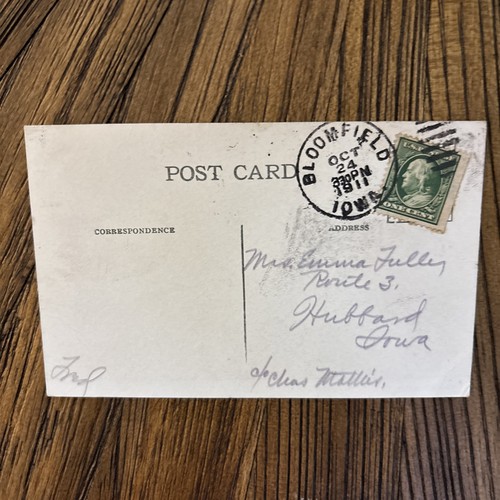 POST CARD
BLOOMFIELD
OCT
24
330PM
1911
IOWA
CORRESPONDENCE
ADDRESS
Mrs. Emma Fuller
Route 3.
Hubbard
Iowa
Fred
c/o Chas Mathis.